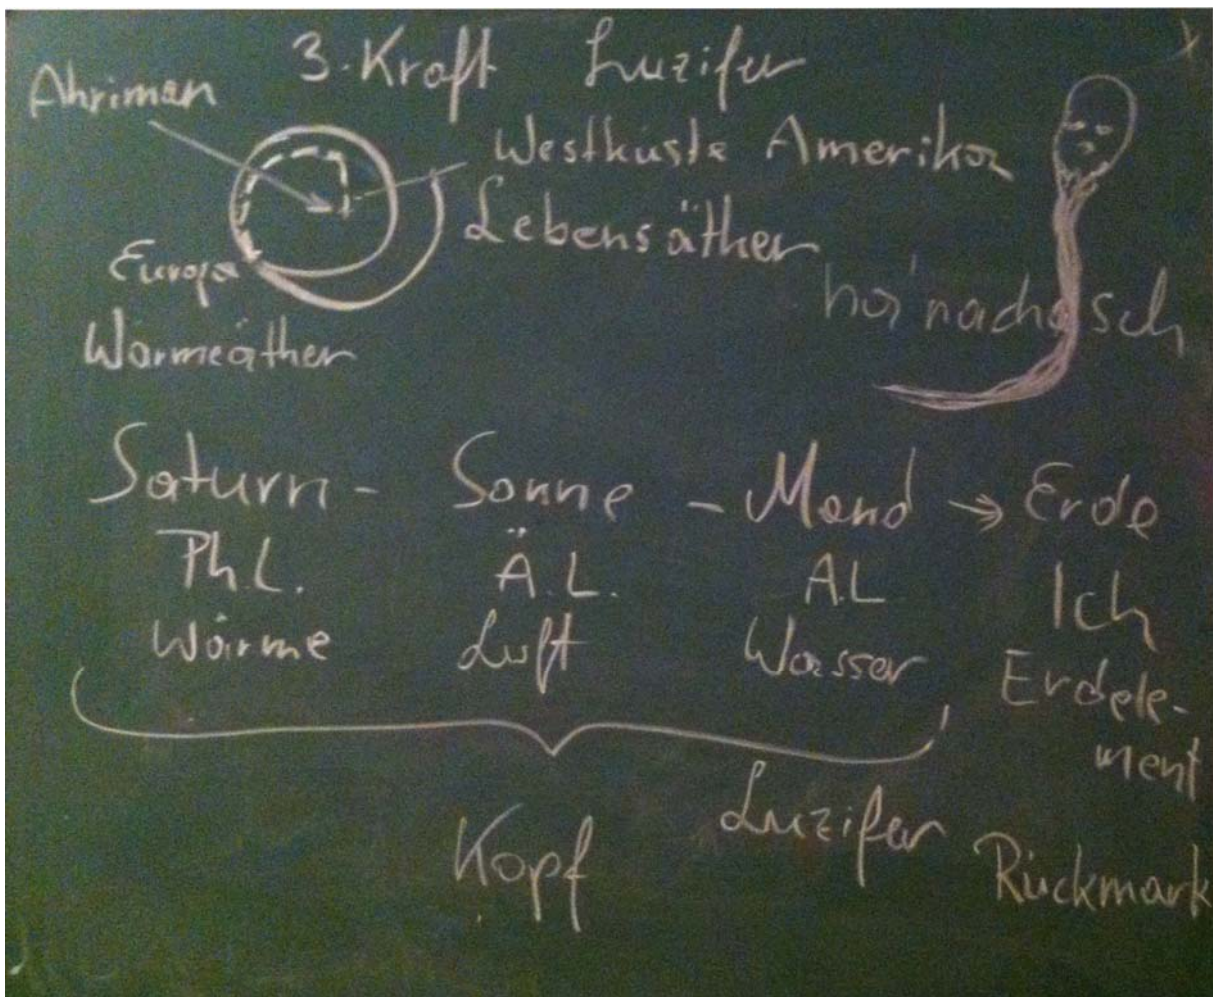 3. Kraft Luzifer
Ahriman
Westküste Amerikas
Lebensäther
Europa
Wärmeäther
Saturn - Sonne - Mond → Erde
Ph.L. Ä.L. A.L Ich
Wärme Luft Wasser Erdele-
ment
Luzifer
Kopf Rückmark